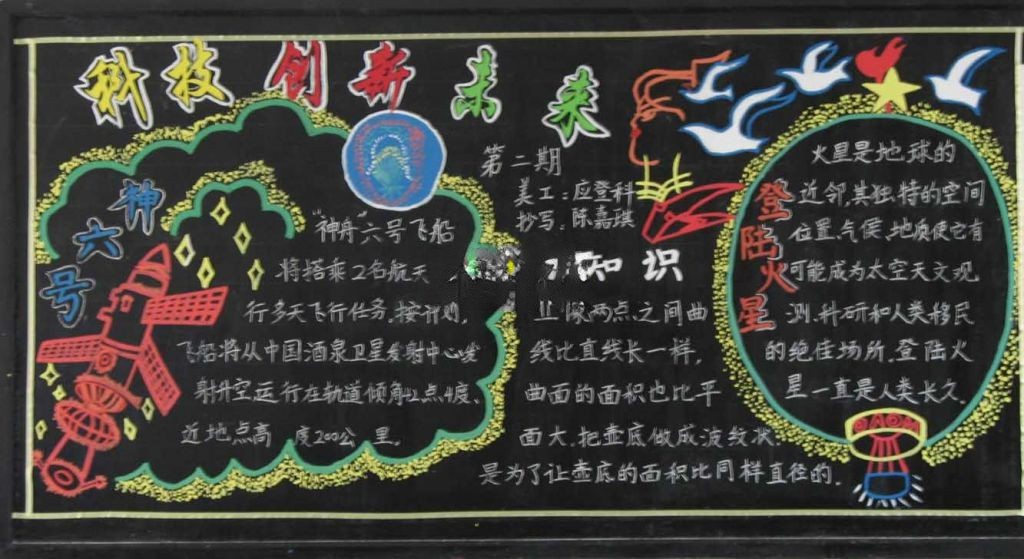 科技创新未来
第二期
美工：应登科
抄写：陈嘉琪
神六号
"神舟"六号飞船
将搭乘2名航天
行多天飞行任务。按计划，
飞船将从中国酒泉卫星发射中心发
射升空运行在轨道倾角42点4度、
近地点高 度200公里。
知识
像两点之间曲
线比直线长一样，
曲面的面积也比平
面大。把壶底做成波纹状
是为了让壶底的面积比同样直径的.
登陆火星
火星是地球的
近邻，其独特的空间
位置、气侯、地质使它有
可能成为太空天文观
测、科研和人类移民
的绝佳场所。登陆火
星一直是人类长久.